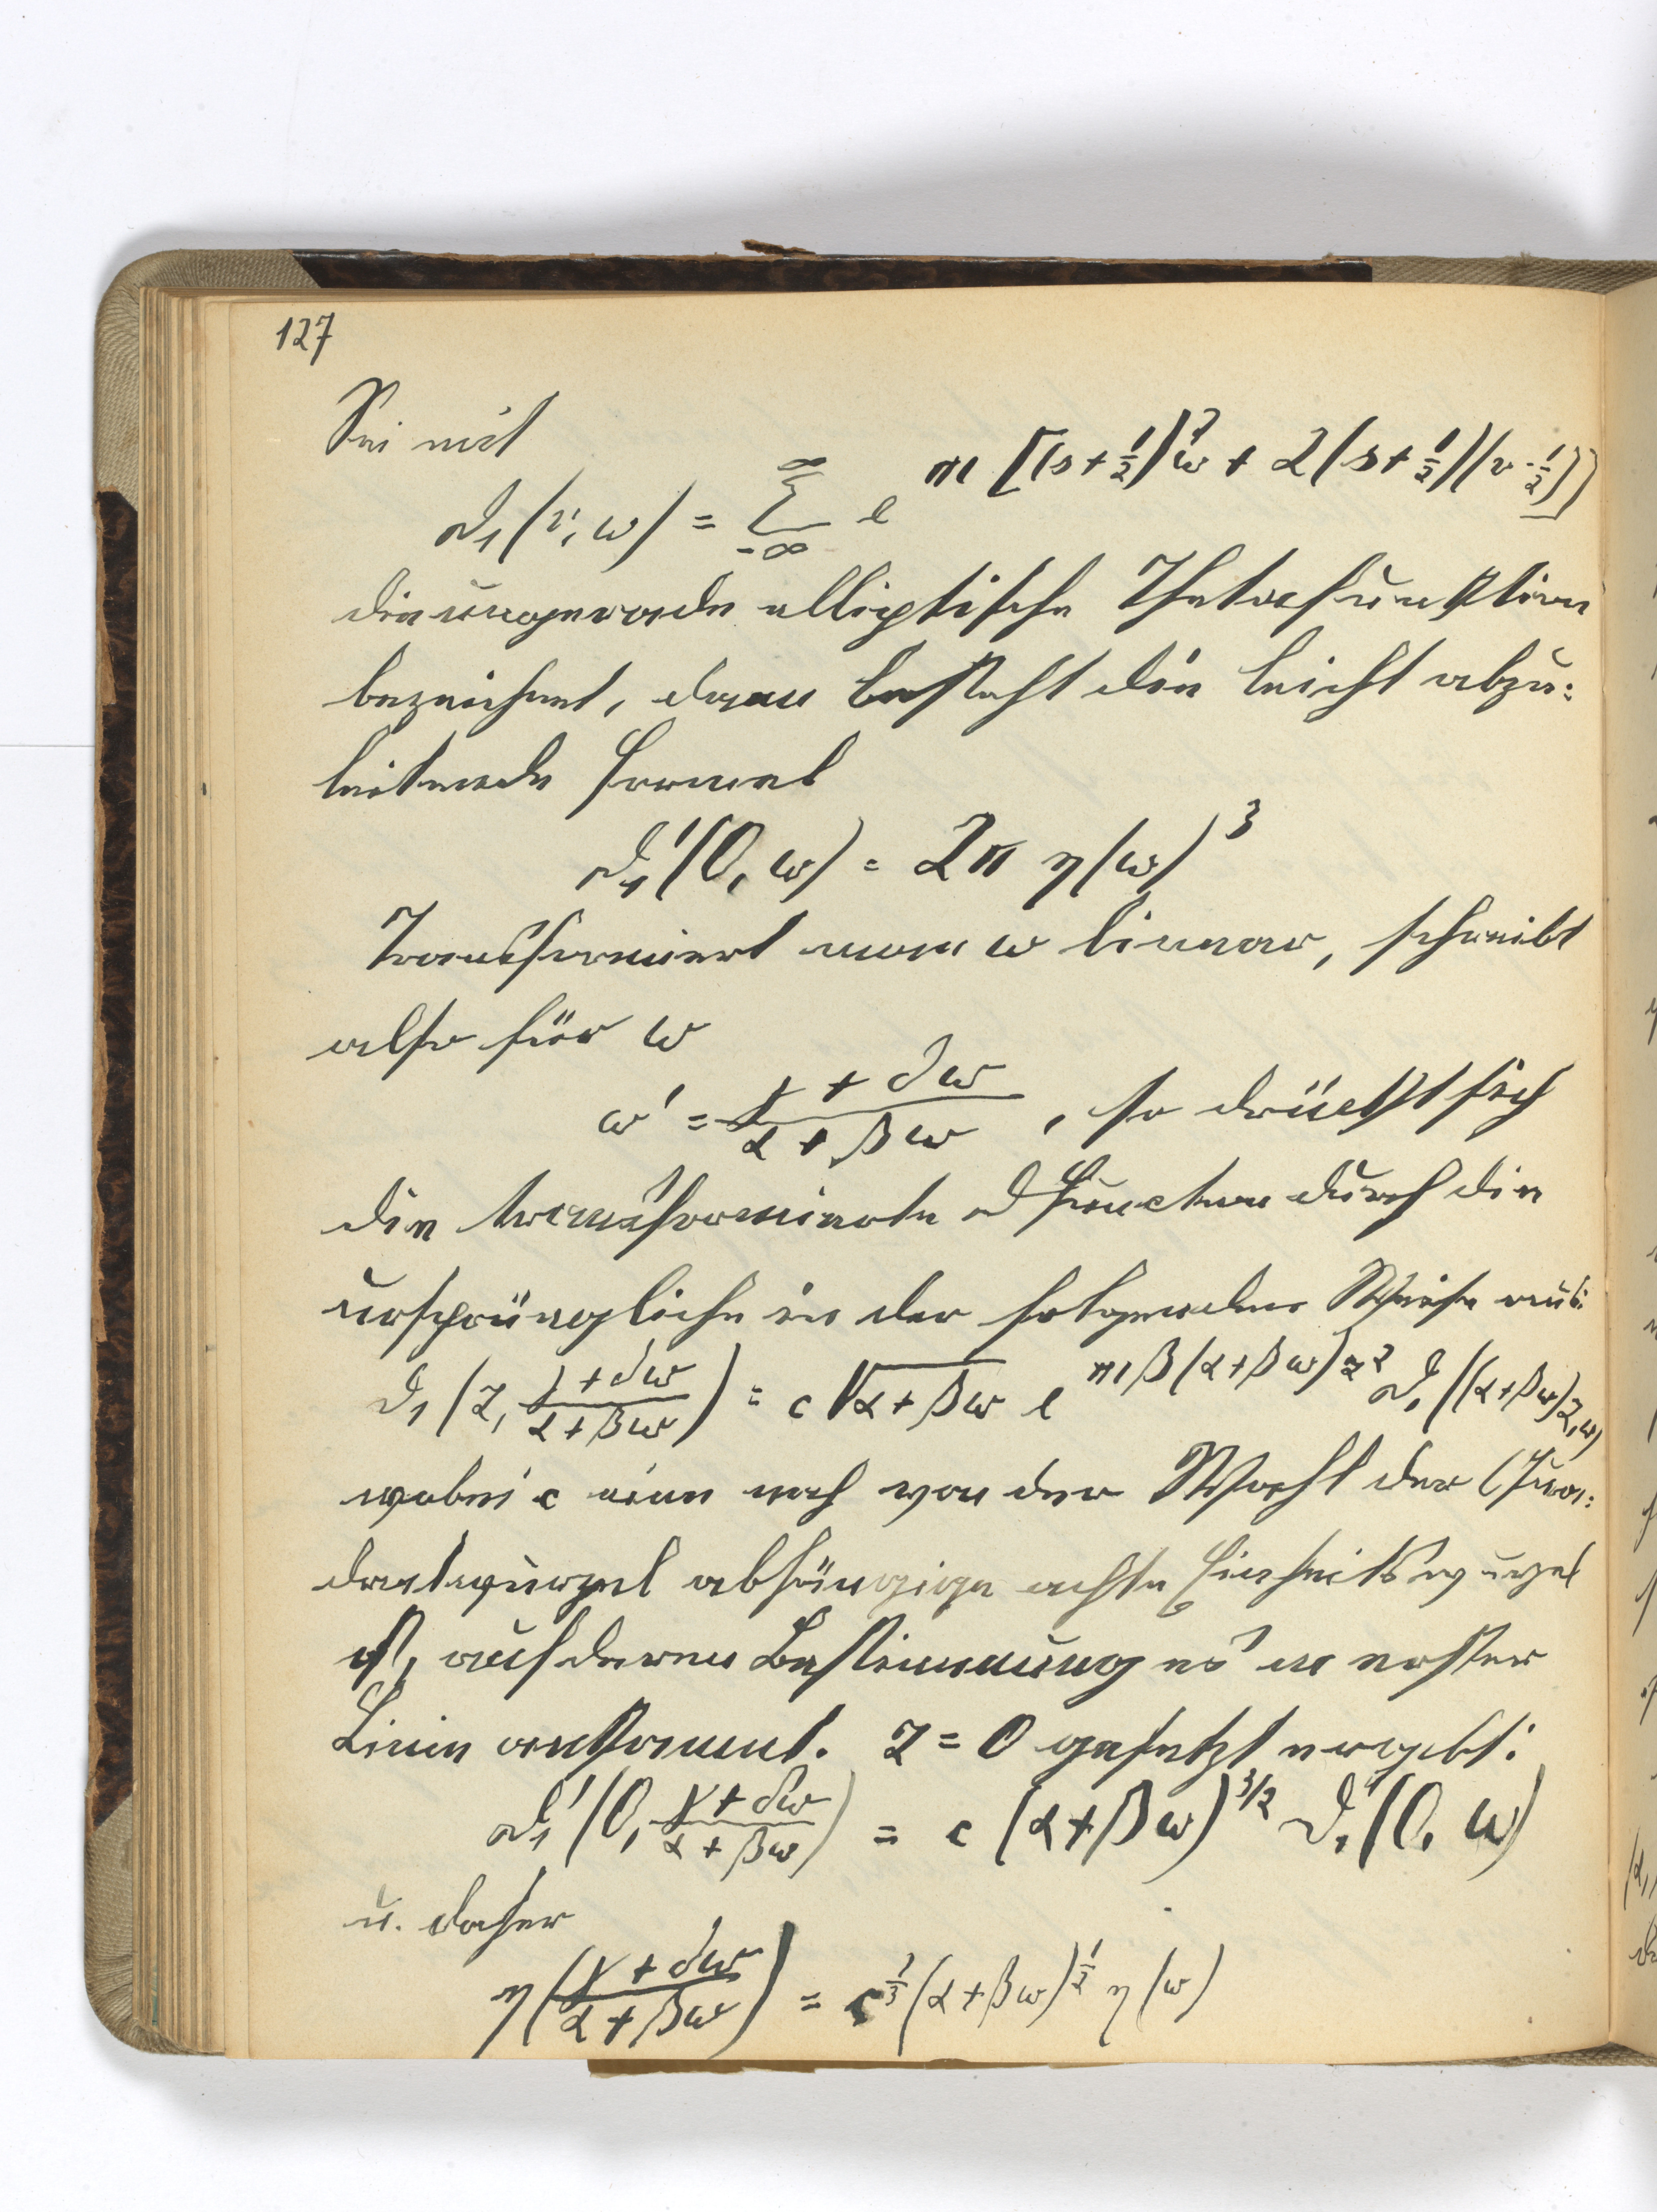 127
Sei mit
ϑ₁(v, ω) = ∑_{-∞}^{∞} e^{πi[(s+½)²ω + 2(s+½)(v-½)]}
die ungerade elliptische Thetafunktion
bezeichnet, dann besteht die leicht abzu:
leitende Formel
ϑ₁'(0, ω) = 2π η(ω)³
Transformiert man ω linear, schreibt
also für ω
ω' = (γ + δω)/(α + βω), so drückt sich
die transformierte ϑ Function durch die
ursprüngliche in der folgenden Weise aus:
ϑ₁(z, (γ + δω)/(α + βω)) = c √(α + βω) e^{πiβ(α+βω)z²} ϑ₁((α+βω)z, ω)
wobei c eine noch von der Wahl der Qua:
dratwurzel abhängige achte Einheitswurzel
ist, auf deren Bestimmung es in erster
Linie ankommt. z = 0 gesetzt ergibt:
ϑ₁'(0, (γ + δω)/(α + βω)) = c (α + βω)^{3/2} ϑ₁'(0, ω)
u. daher
η((γ + δω)/(α + βω)) = c^{⅓} (α + βω)^{½} η(ω)